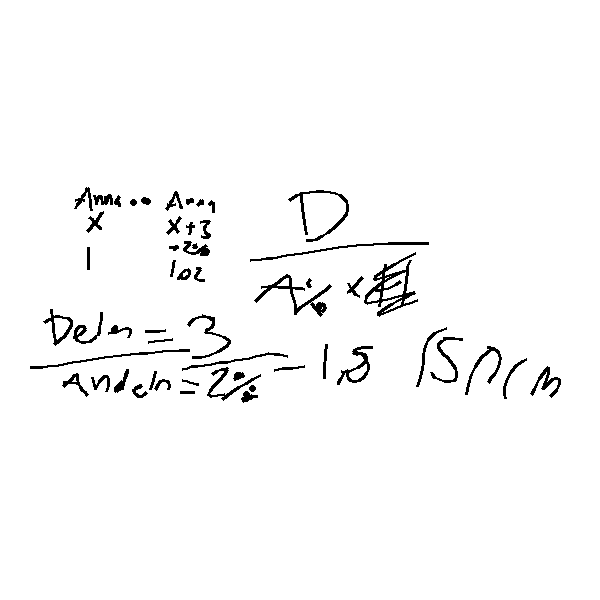 Anna Anna
X X+3
+2%
1 1,02
D
A% x
Deln = 3
Andeln = 2% = 1,5 150 cm